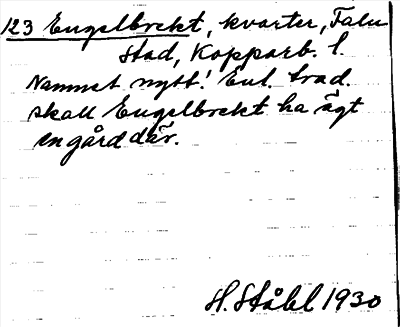 123 Engelbrekt, kvarter, Falu
stad, Kopparb. l.
Namnet nytt! Enl. trad.
skall Engelbrekt ha ägt
en gård där.
H. Ståhl 1930